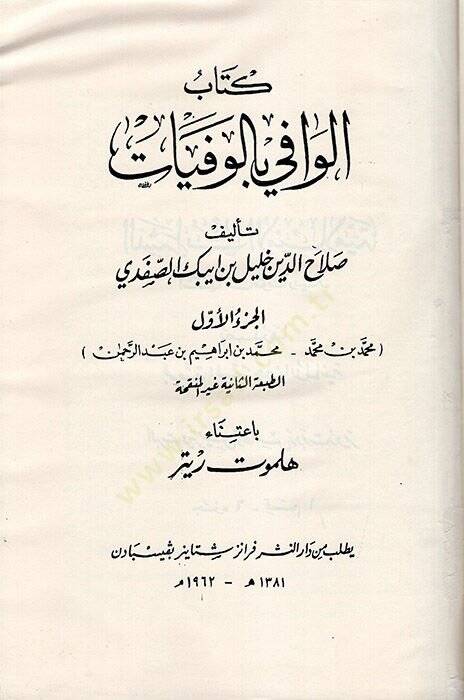 كتاب
الوافي بالوفيات
تأليف
صلاح الدين خليل بن ايبك الصفدي
الجزء الأول
( محمد بن محمد - محمد بن ابراهيم بن عبد الرحمن )
الطبعة الثانية غير المنقحة
باعتناء
هلموت ريتر
يطلب من دار النشر فرانز شتاينر بڤيسبادن
١٣٨١ هـ - ١٩٦٢ م